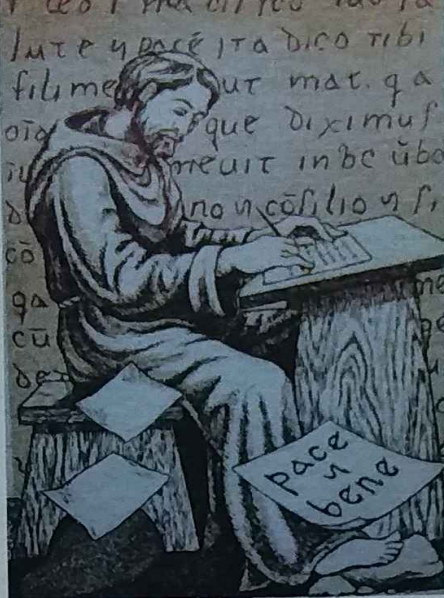 lute ɥ pacē ita dico tibi
fili me ut mat. qa
oīa que diximuſ
meuit in bc ūbo
no ɥ cōſilio ɥ ſi
cō
qa
cū
de
pace
ɥ
bene